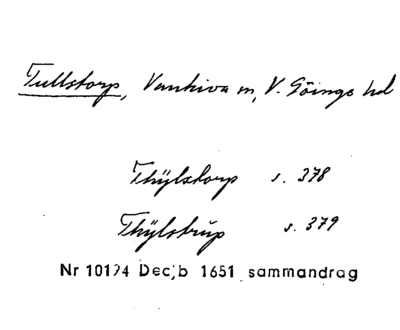 Tullstorp, Vankiva sn, V. Göinge hd
Thÿlstorp s. 378
Thÿlstrup s. 379
Nr 10194 Dec;b 1651 sammandrag